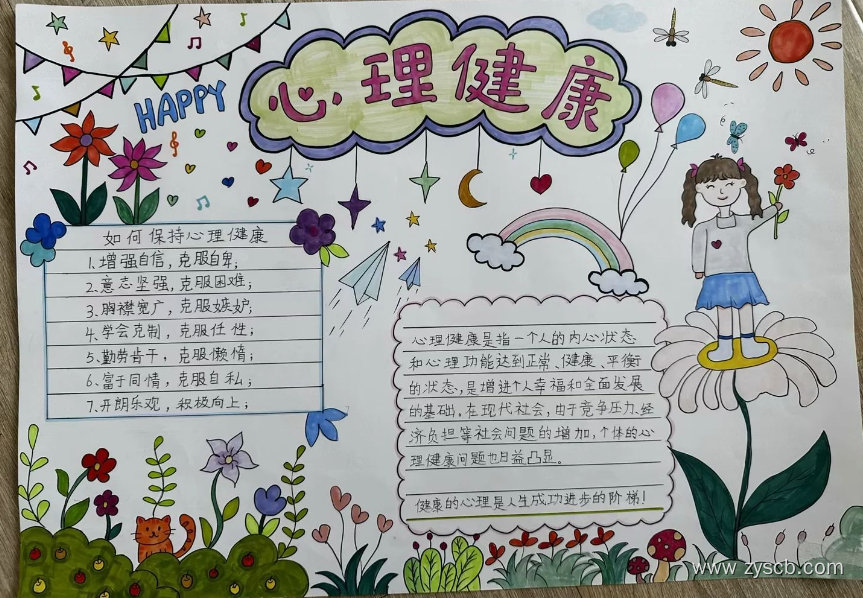 心理健康
HAPPY
如何保持心理健康
1、增强自信，克服自卑；
2、意志坚强，克服困难；
3、胸襟宽广，克服嫉妒；
4、学会克制，克服任性；
5、勤劳肯干，克服懒惰；
6、富于同情，克服自私；
7、开朗乐观，积极向上；
心理健康是指一个人的内心状态
和心理功能达到正常、健康、平衡
的状态，是增进个人幸福和全面发展
的基础。在现代社会，由于竞争压力、经
济负担等社会问题的增加，个体的心
理健康问题也日益凸显。
健康的心理是人生成功进步的阶梯！
www.zyscb.com